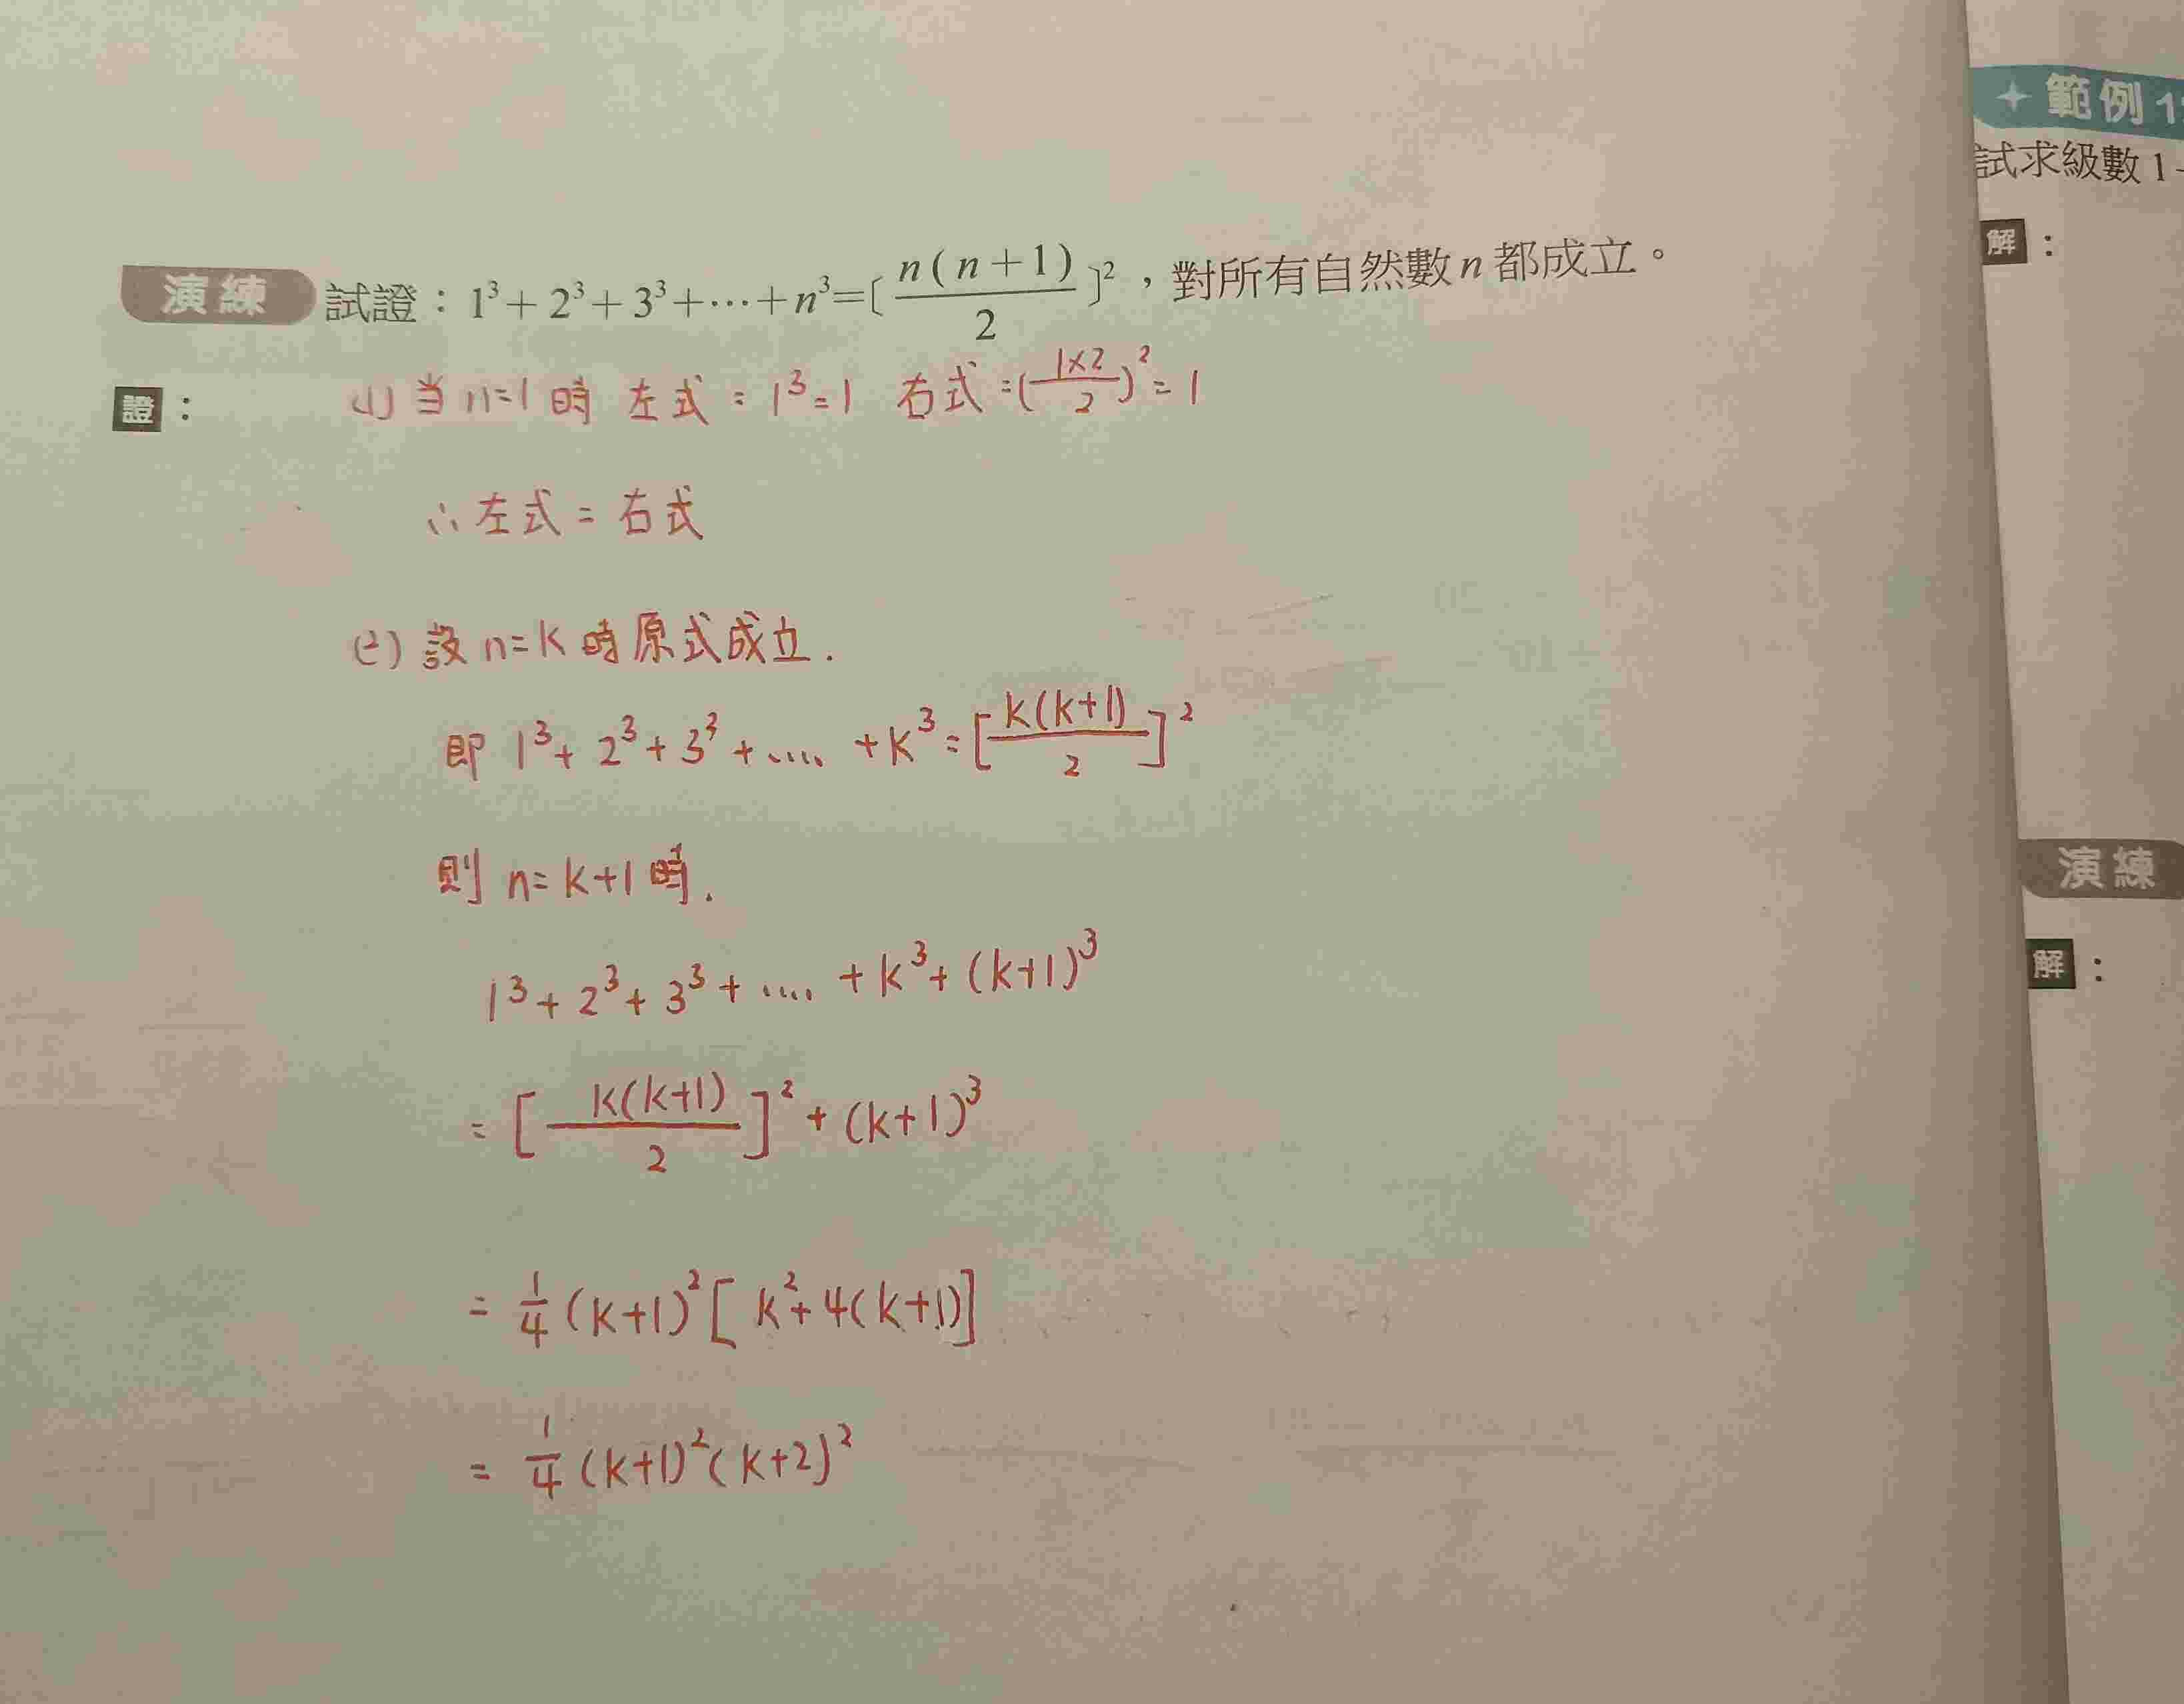 演練 試證：1³+2³+3³+⋯+n³=〔n(n+1)/2〕²，對所有自然數n都成立。
證：
(1) 当 n=1 時 左式 = 1³=1 右式 =(1×2/2)²= 1
∴左式 = 右式
(2) 設 n=k 時原式成立.
即 1³+ 2³+3³+ .... +k³=[k(k+1)/2]²
則 n= k+1 時.
1³+2³+3³+ .... +k³+(k+1)³
= [k(k+1)/2]²+(k+1)³
= 1/4 (k+1)²[k²+4(k+1)]
= 1/4 (k+1)²(k+2)²
範例 1
試求級數 1
解：
演練
解：